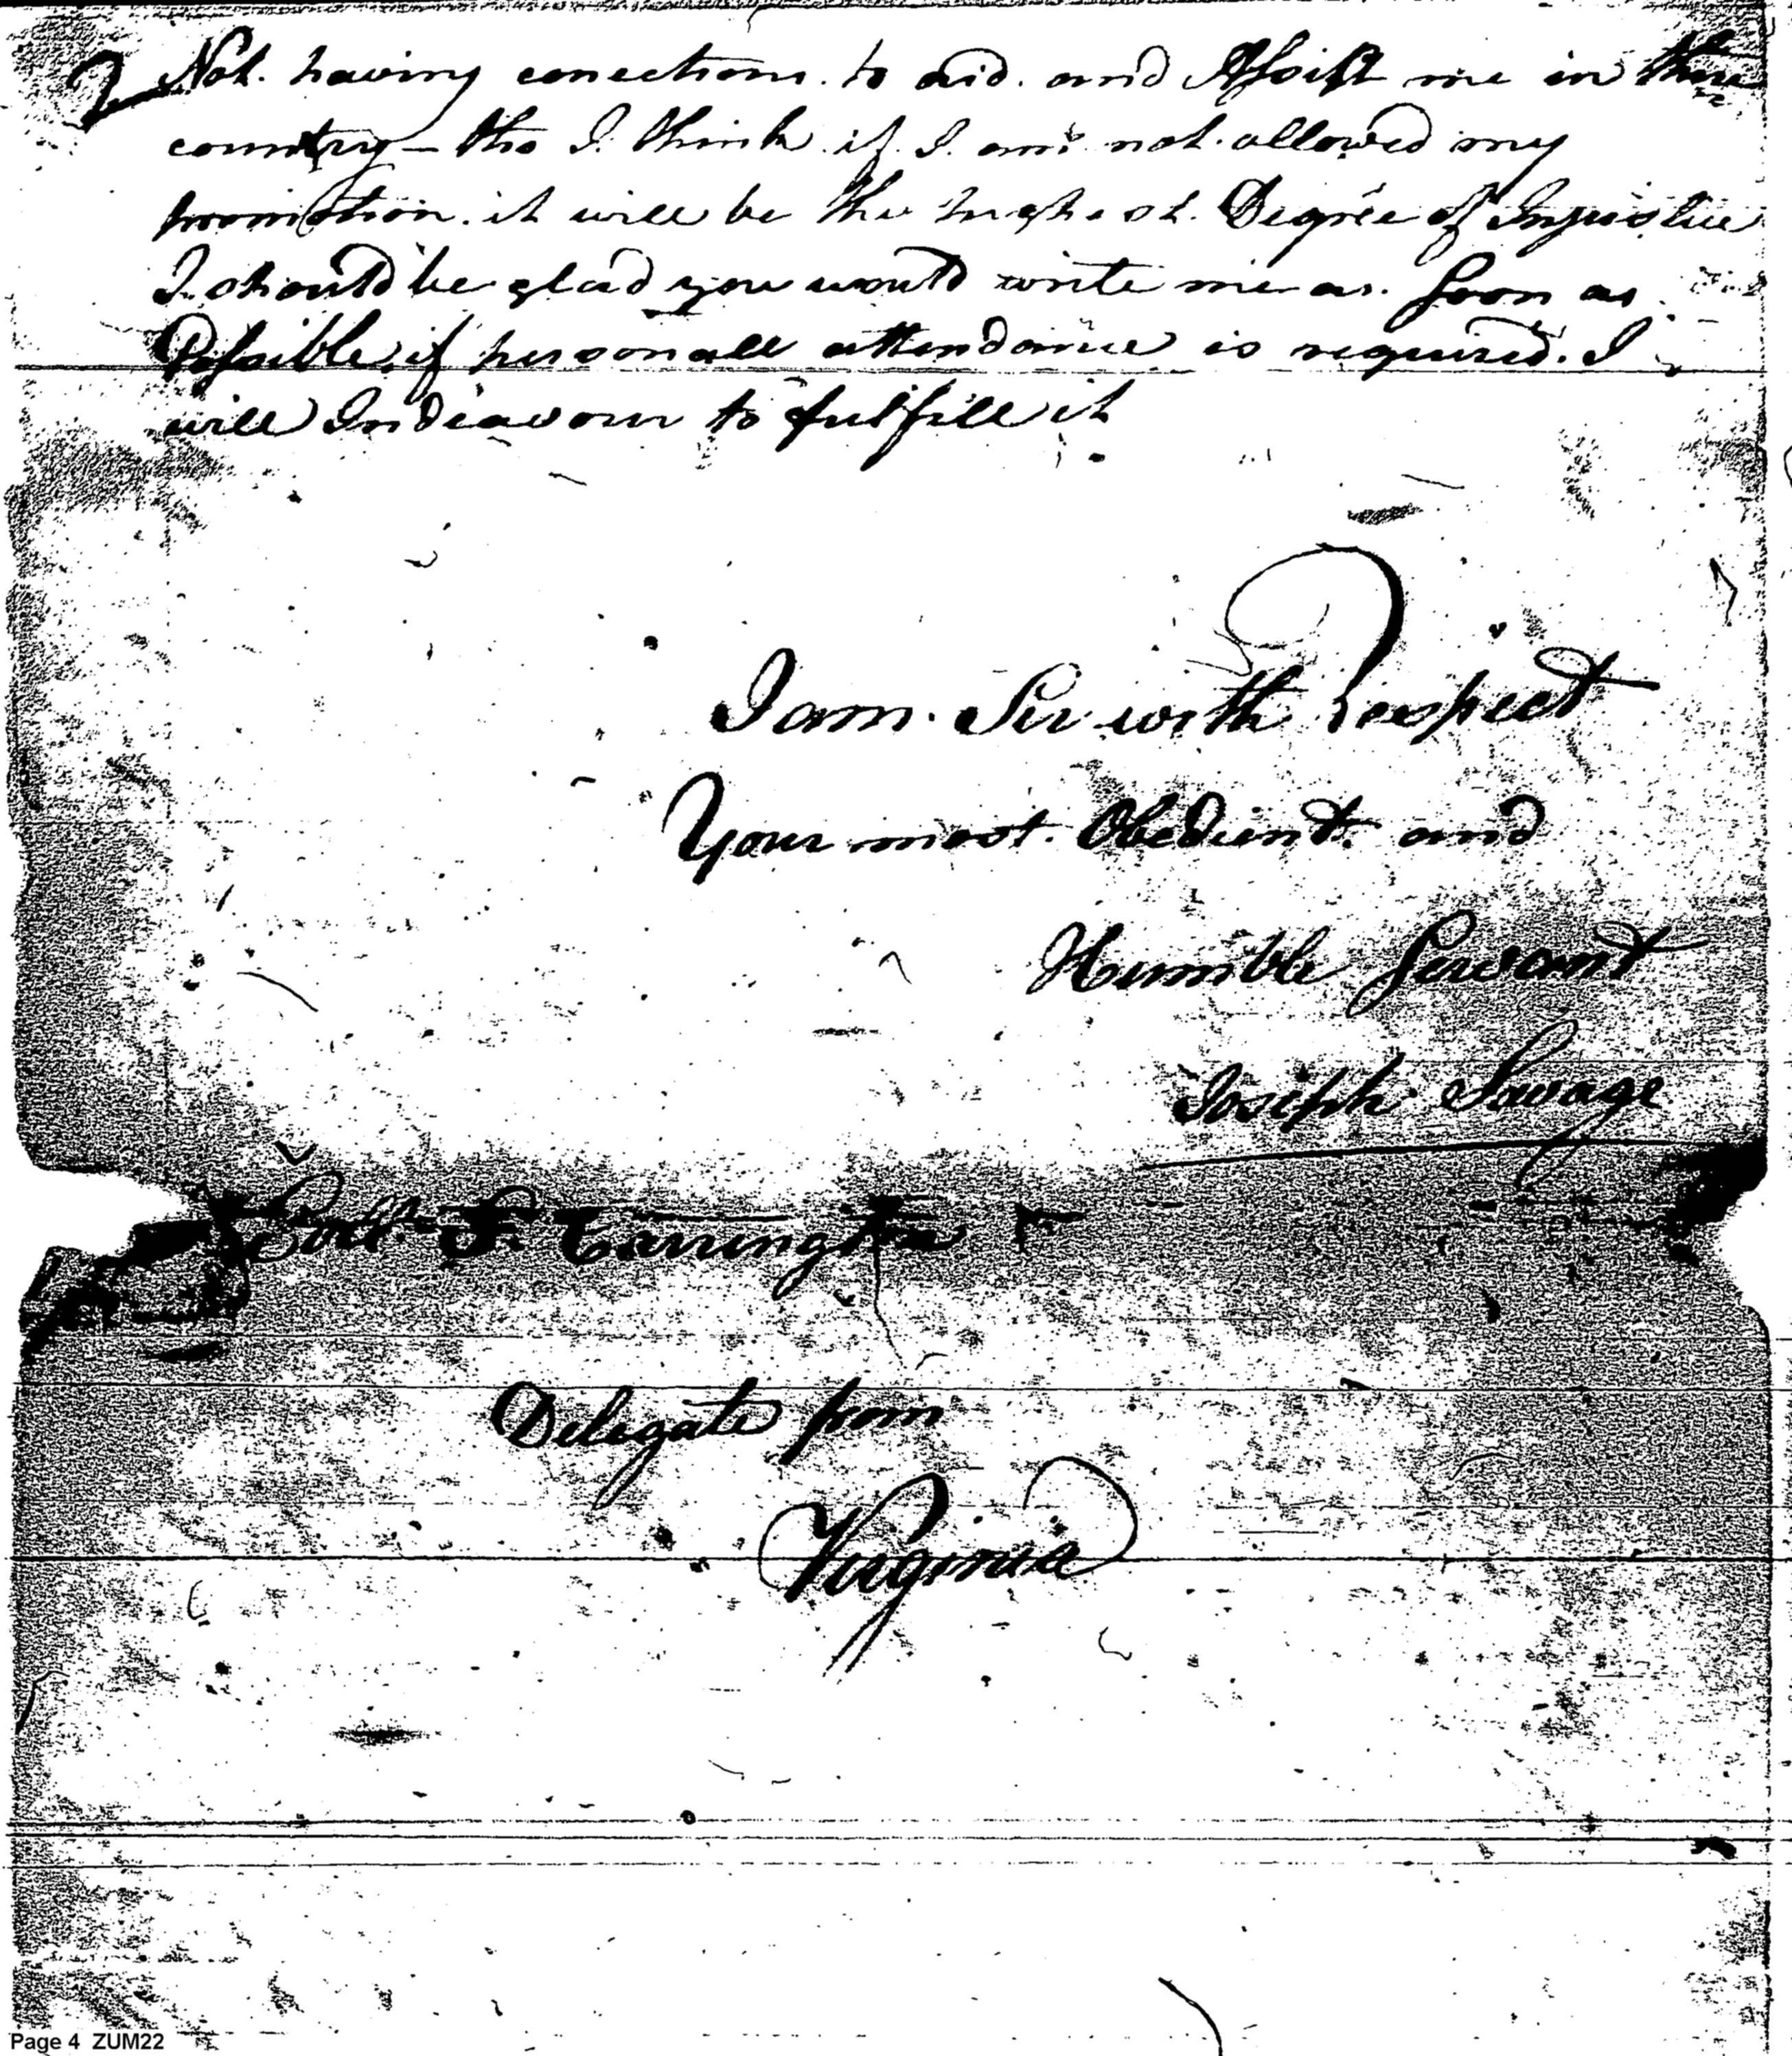 Not having conections to aid and Assist me in this
country – tho I think if I am not allowed my
promotion it will be the highest Degree of Injustice
I should be glad you would write me as Soon as
Possible, if personall attendance is required. I
will Indeavour to fulfill it
I am Sir with Respect
Your most Obedient and
Humble Servant
Joseph Savage
Coll. Carrington
Delegate from
Virginia
Page 4 ZUM22